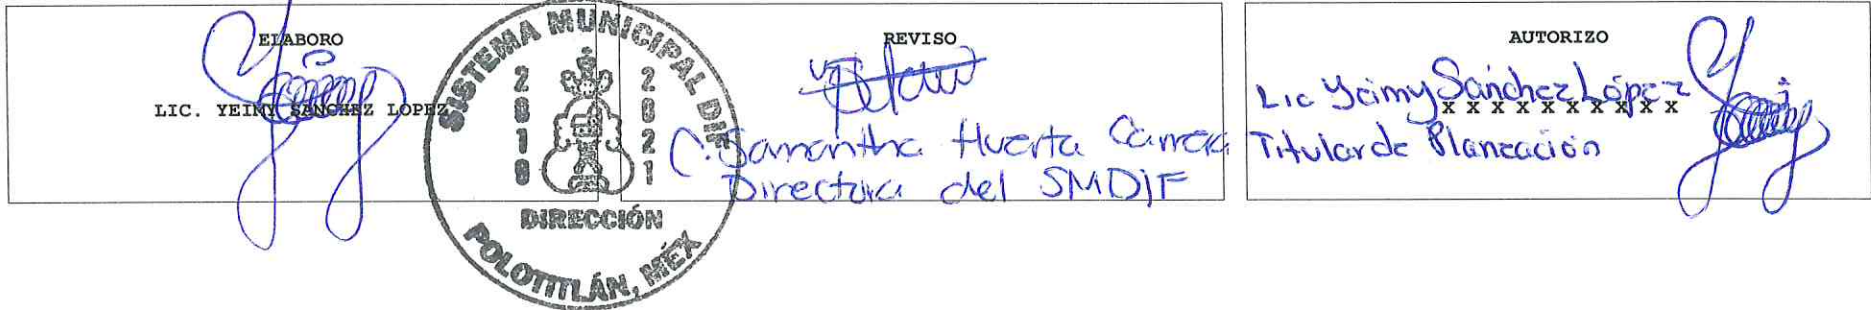 ELABORO
LIC. YEIMY SANCHEZ LOPEZ
SISTEMA MUNICIPAL DIF
2019
2021
DIRECCIÓN
POLOTITLÁN, MÉX
REVISO
C. Samantha Huerta
Directora del SMDIF
AUTORIZO
Lic Yeimy Sánchez López
X X X X X X X X X X
Titular de Planeación